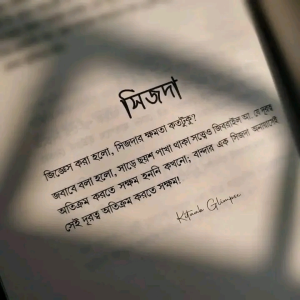 সিজদা
জিজ্ঞেস করা হলো, সিজদার ক্ষমতা কতটুকু?
জবাবে বলা হলো, সাড়ে ছয়শ পাখা থাকা সত্ত্বেও জিবরাইল আ. যে দূরত্ব
অতিক্রম করতে সক্ষম হননি কখনো; বান্দার এক সিজদা অনায়াসেই
সেই দূরত্ব অতিক্রম করতে সক্ষম!
Kitaab Glimpse